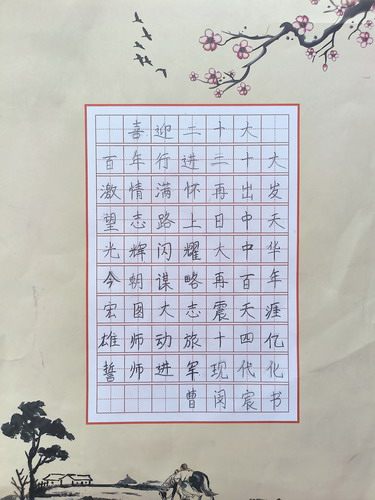 喜迎二十大
百年行进二十大
激情满怀再出发
望志路上日中天
光辉闪耀大中华
今朝谋略再百年
宏图大志震天涯
雄师动旅十四亿
誓师进军现代化
曹闵宸书